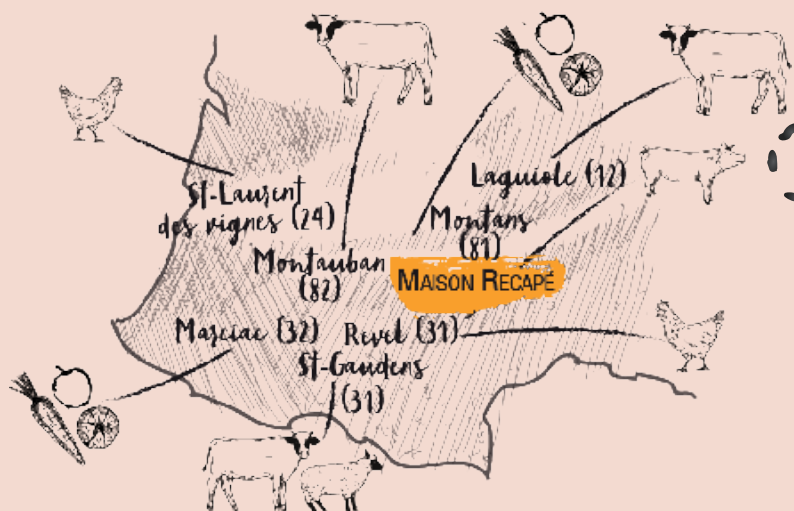 St-Laurent
des vignes (24)
Laguiole (12)
Montans
(81)
Montauban
(82)
MAISON RECAPÉ
Marciac (32)
Revel (31)
St-Gaudens
(31)